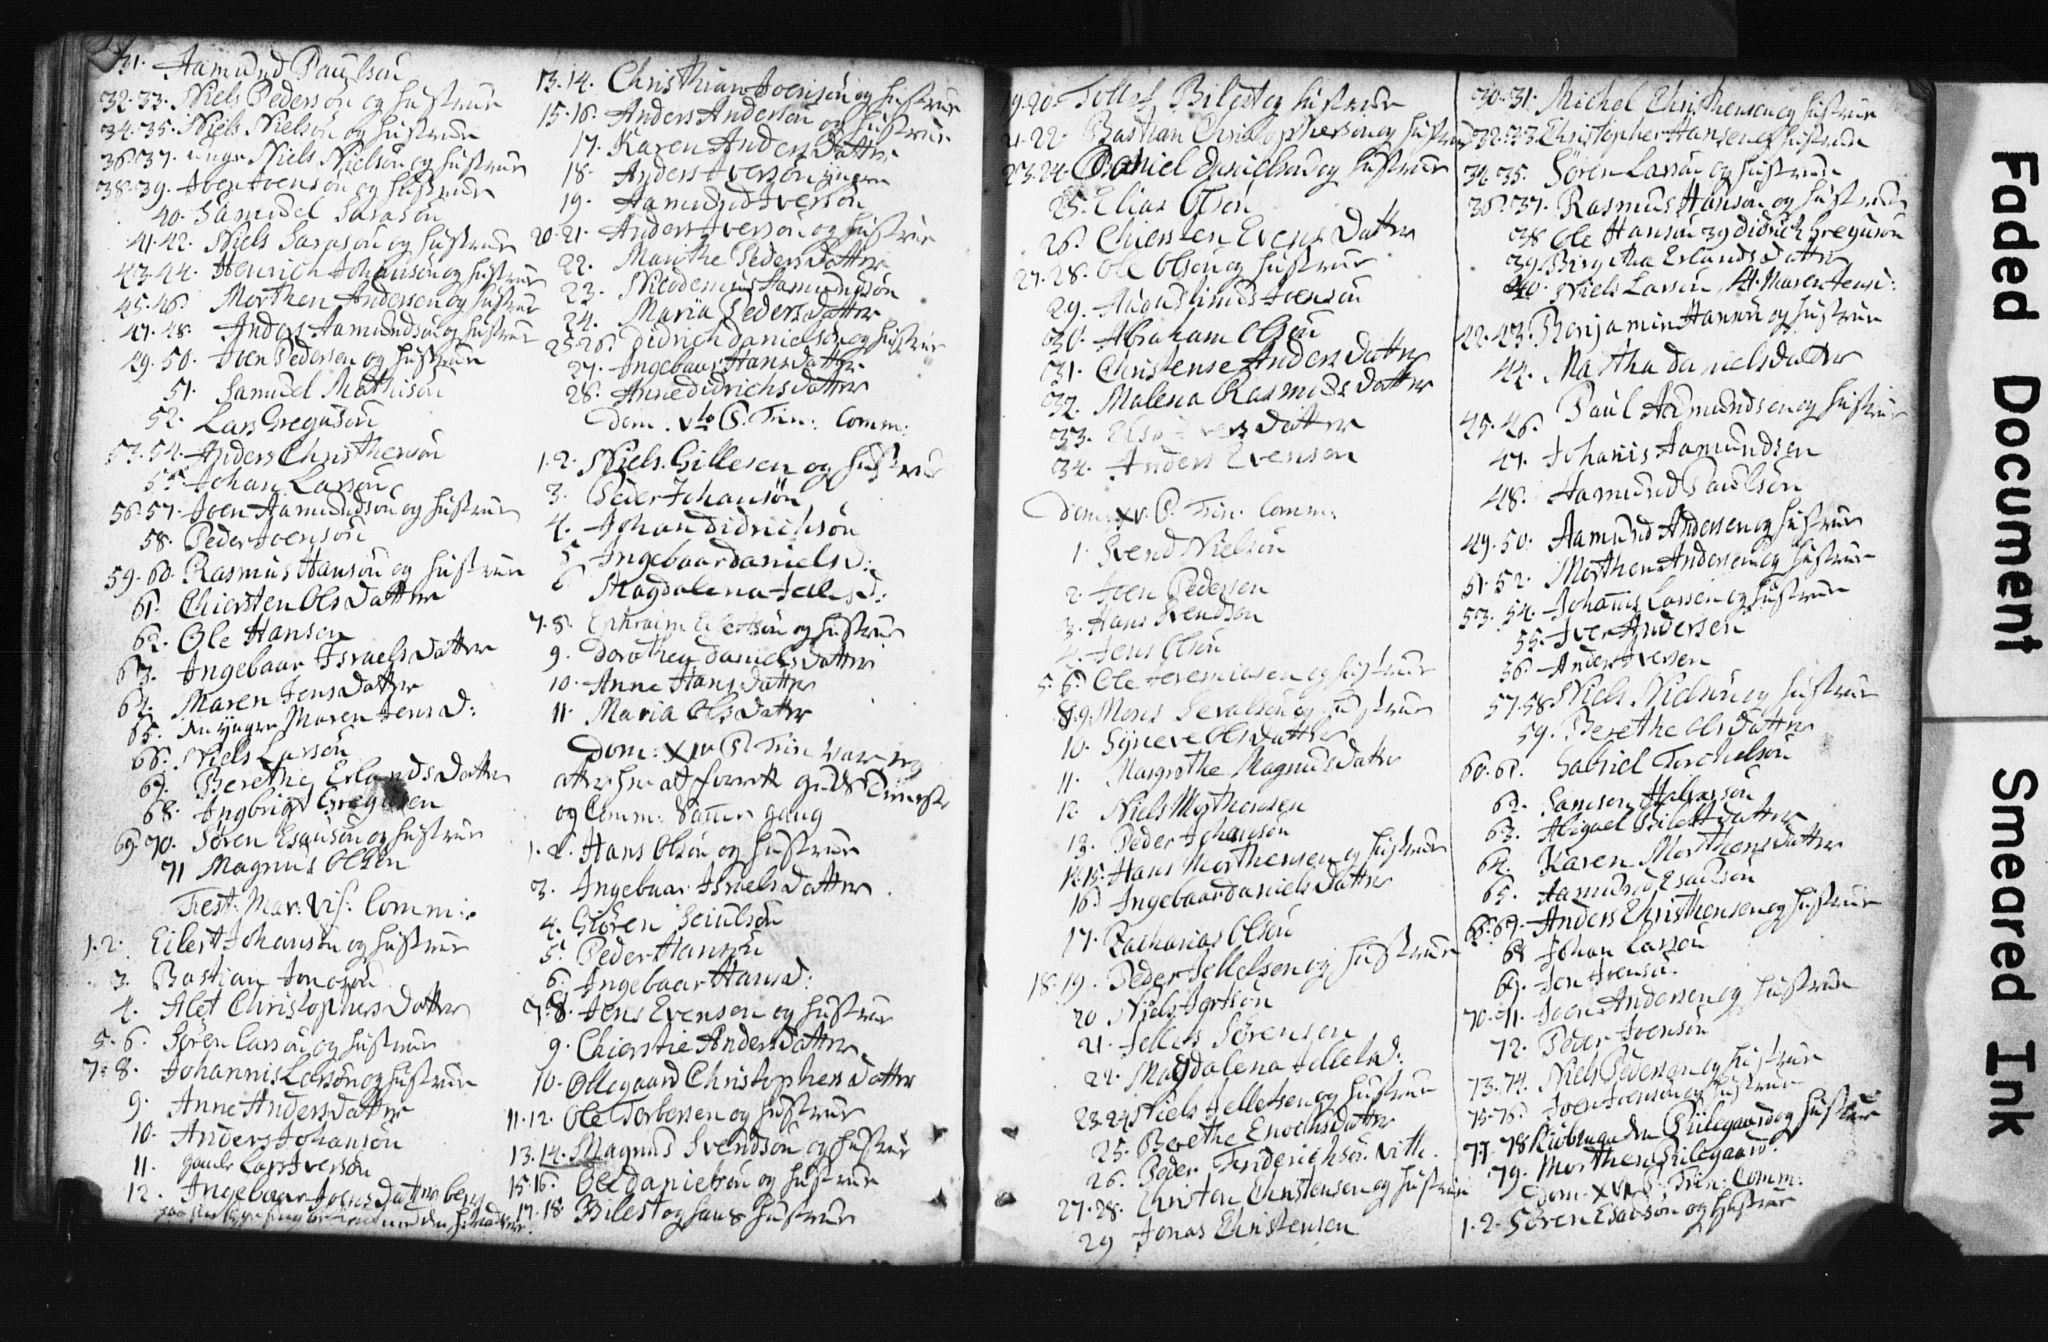 31. Aamund Paulsøn
32. 33. Niels Pedersøn og hustrue
34. 35. Niels Nielsøn og hustrue
36. 37. unge Niels Nielsøn og hustrue
38. 39. Joen Joensøn og hustrue
40. Samuel
41. 42. Niels og hustrue
43. 44. Henrich Johansøn og hustrue
45. 46. Morthen Andersen og hustrue
47. 48. Anders Aamundsøn og hustrue
49. 50. Joen Pedersøn og hustrue
51. Samuel Mathisøn
52. Lars Gregusøn
53. 54. Anders Christhensøn
55. Johan Larsøn
56. 57. Joen Aamundsøn og hustrue
58. Peder Joensøn
59. 60. Rasmus Hansøn og hustrue
61. Chiersten Olsdatter
62. Ole Hansen
63. Ingebaar Israelsdatter
64. Maren Jensdatter
65. den yngre Maren Jensd:
66. Niels Larsøn
67. Berethe Erlandsdatter
68. Ingbrigt Gregusen
69. 70. Søren Esausøn og hustrue
71 Magnus Olsøn
Fest: Mar: Vis: Comm:
1. 2. Eilert Johansøn og hustrue
3. Bastian
4. Alet Christophersdatter
5. 6. Søren Larsøn og hustrue
7. 8. Johannis Larsøn og hustrue
9. Anne Andersdatter
10. Anders Johansøn
11. gamle Lars Iversøn
12. Ingebaar Joensdatter
13. 14. Christhian Joensøn og hustrue
15. 16. Anders Andersøn og hustrue
17. Karen Andersdatter
18. Anders Iversøn
19. Aamund Iversøn
20. 21. Anders Iversøn og hustrue
22. Marithe Pedersdatter
23. Nicodemus Aamundsøn
24. Maria Pedersdatter
25. 26. Didrich Danielsøn og hustrue
27. Ingebaar Hansdatter
28. Anne Didrichsdatter
Dom. Vto P. Trin: Comm:
1. 2. Niels Gillesen og hustrue
3. Peder Johansøn
4. Johan Didrichsøn
5. Ingebaar Daniels D:
6 Magdalena D:
7. 8. Ephraim Eilertsøn og hustrue
9. Dorothea Danielsdatter
10. Anne Hansdatter
11. Maria Olsdatter
Dom: XIV P. Trin var ieg
atter her att forrett Guds Tieneste
og Comm: samme gang
1. 2. Hans Olsøn og hustrue
3. Ingebaar Israelsdatter
4. Gioren
5. Peder Hansøn
6. Ingebaar Hansd:
7. 8. Jens Evensøn og hustrue
9. Chierstie Andersdatter
10. Ollegaard Christophersdatter
11. 12. Ole Torbersen og hustrue
13. 14. Magnus Svendsøn og hustrue
15. 16. Ole Danielsøn og hustrue
17. 18 Bilest og hans hustrue
19. 20. Tollef Bilest og hustrue
21. 22. Bastian Christophersøn og hustrue
23. 24. Daniel Danielsøn og hustrue
25. Elias Olsøn
26. Chiersten Evensdatter
27. 28. Ole Olsøn og hustrue
29. Augustinus Joensøn
30. Abraham Olsøn
31. Christense Andersdatter
32. Malena Rasmusdatter
33. datter
34. Anders Evensøn
Dom: XV. P. Trin. Comm:
1. Svend Nielsøn
2. Joen Pedersen
3. Hans Svendsøn
4. Jens Olsøn
5. 6. Ole Jeremiasen og hustrue
8. 9. Mons og hustrue
10. Syneve Olsdatter
11. Margrethe Magnusdatter
12 Niels Morthensen
13. Peder Johansøn
14. 15. Hans Morthensen og hustrue
16. Ingebaar Danielsdatter
17. Zacharias Olsøn
18. 19. Peder Jellefsen og hustrue
20 Niels
21. Jellefs Sørensen
22. Magdalena Jellefsd:
23. 24. Niels Jellefsen og hustrue
25. Berethe Enochsdatter
26. Peder Friderichsøn
27. 28. Christen Christensen og hustrue
29 Jonas Christensen
30. 31. Michel Christhensen og hustrue
32. 33. Christopher Hansen og hustrue
34. 35. Søren Larsøn og hustrue
36. 37. Rasmus Hansøn og hustrue
38 Ole Hansøn 39 Didrich Gregusøn
39. Birgitha Erlandsdatter
40. Niels Larsøn 41. Maren
42. 43. Benjamin Hansøn og hustrue
44. Martha Danielsdatter
45. 46. Paul Aamundsen og hustrue
47. Johanis Aamundsen
48. Aamund Paulsøn
49. 50. Aamund Andersen og hustrue
51. 52. Morthen Andersen og hustrue
53. 54. Johannis Larsen og hustrue
55. Iver Andersen
56. Anders Iversen
57. 58. Niels Nielsøn og hustrue
59. Berethe Olsdatter
60. 61. Gabriel Torchelsøn
62. Samson Halvorsøn
63. Abigael datter
64. Karen Morthensdatter
65. Aamund Esausøn
66. 67. Anders Christhensen og hustrue
68 Johan Larsøn
69. Jon
70. 71. Joen Andersen og hustrue
72. Peder Joensøn
73. 74. Niels Pedersøn og hustrue
75. 76. Joen Joensøn og hustrue
77. 78 og hustrue
79. Morthen
Dom. XVI P. Trin: Comm:
1. 2. Søren Esausøn og hustrue
Faded Document Smeared Ink